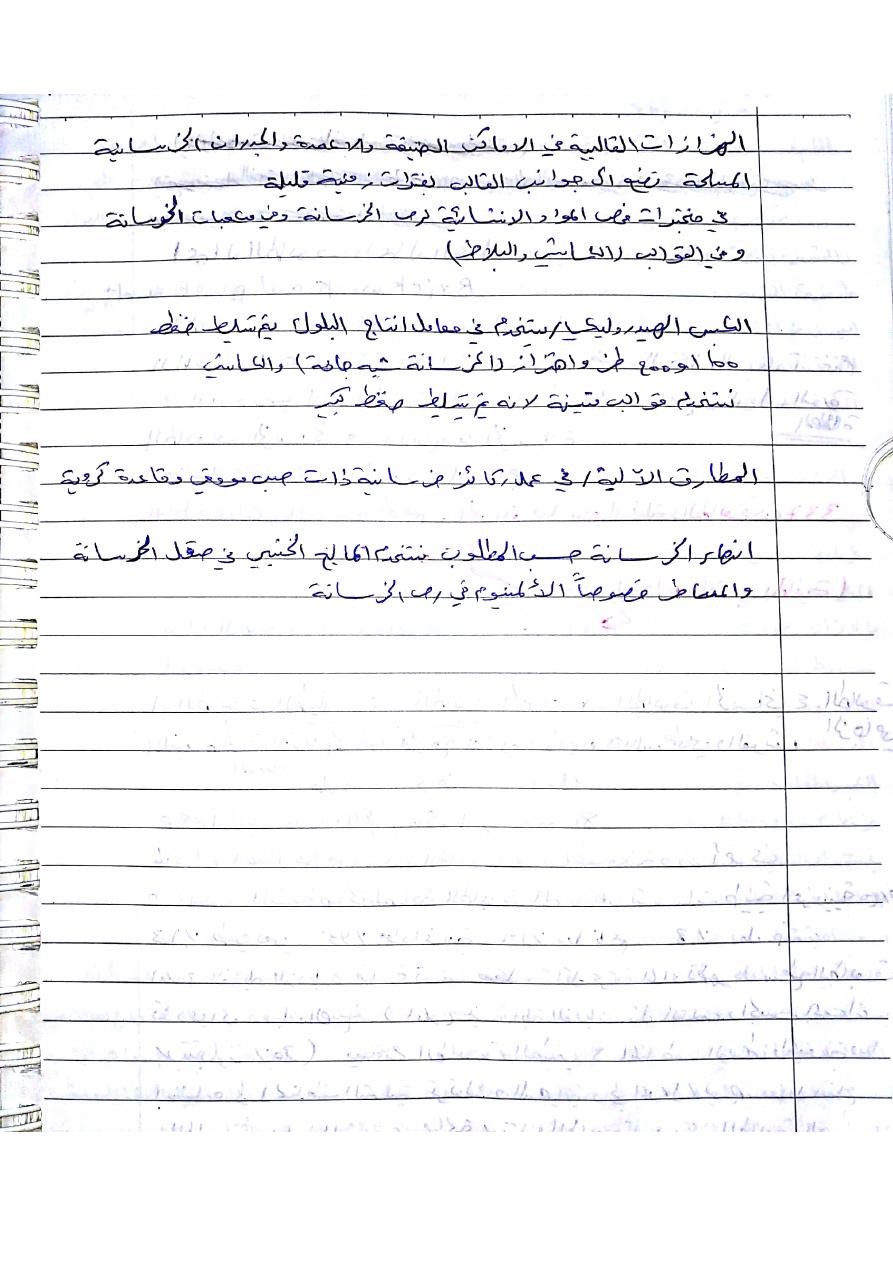 الهزازات القالبية في الاماكن الضيقة والاعمدة والجدران الخرسانية
المسلحة تضع الى جوانب القالب بفترات زمنية قليلة
في مختبرات فحص المواد الانشائية لرص الخرسانة وفي مكعبات الخرسانة
وفي القوالب (الكاشي والبلاط)
الكبس الهيدروليكي / يستخدم في معامل انتاج البلوك يتم تسليط ضغط
طن واهتزاز (الخرسانة شبه جافة) والكاشي
نستخدم قوالب متينة لانه يتم تسليط ضغط كبير
المطارق الآلية / في عمل ركائز خرسانية ذات صب موقعي وقاعدة كروية
انهاء الخرسانة حسب المطلوب نستخدم المالج الخشبي في صقل الخرسانة
والمساطر خصوصاً الألمنيوم في رص الخرسانة